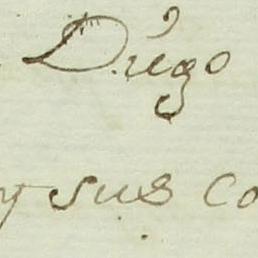 Diego
y sus Co